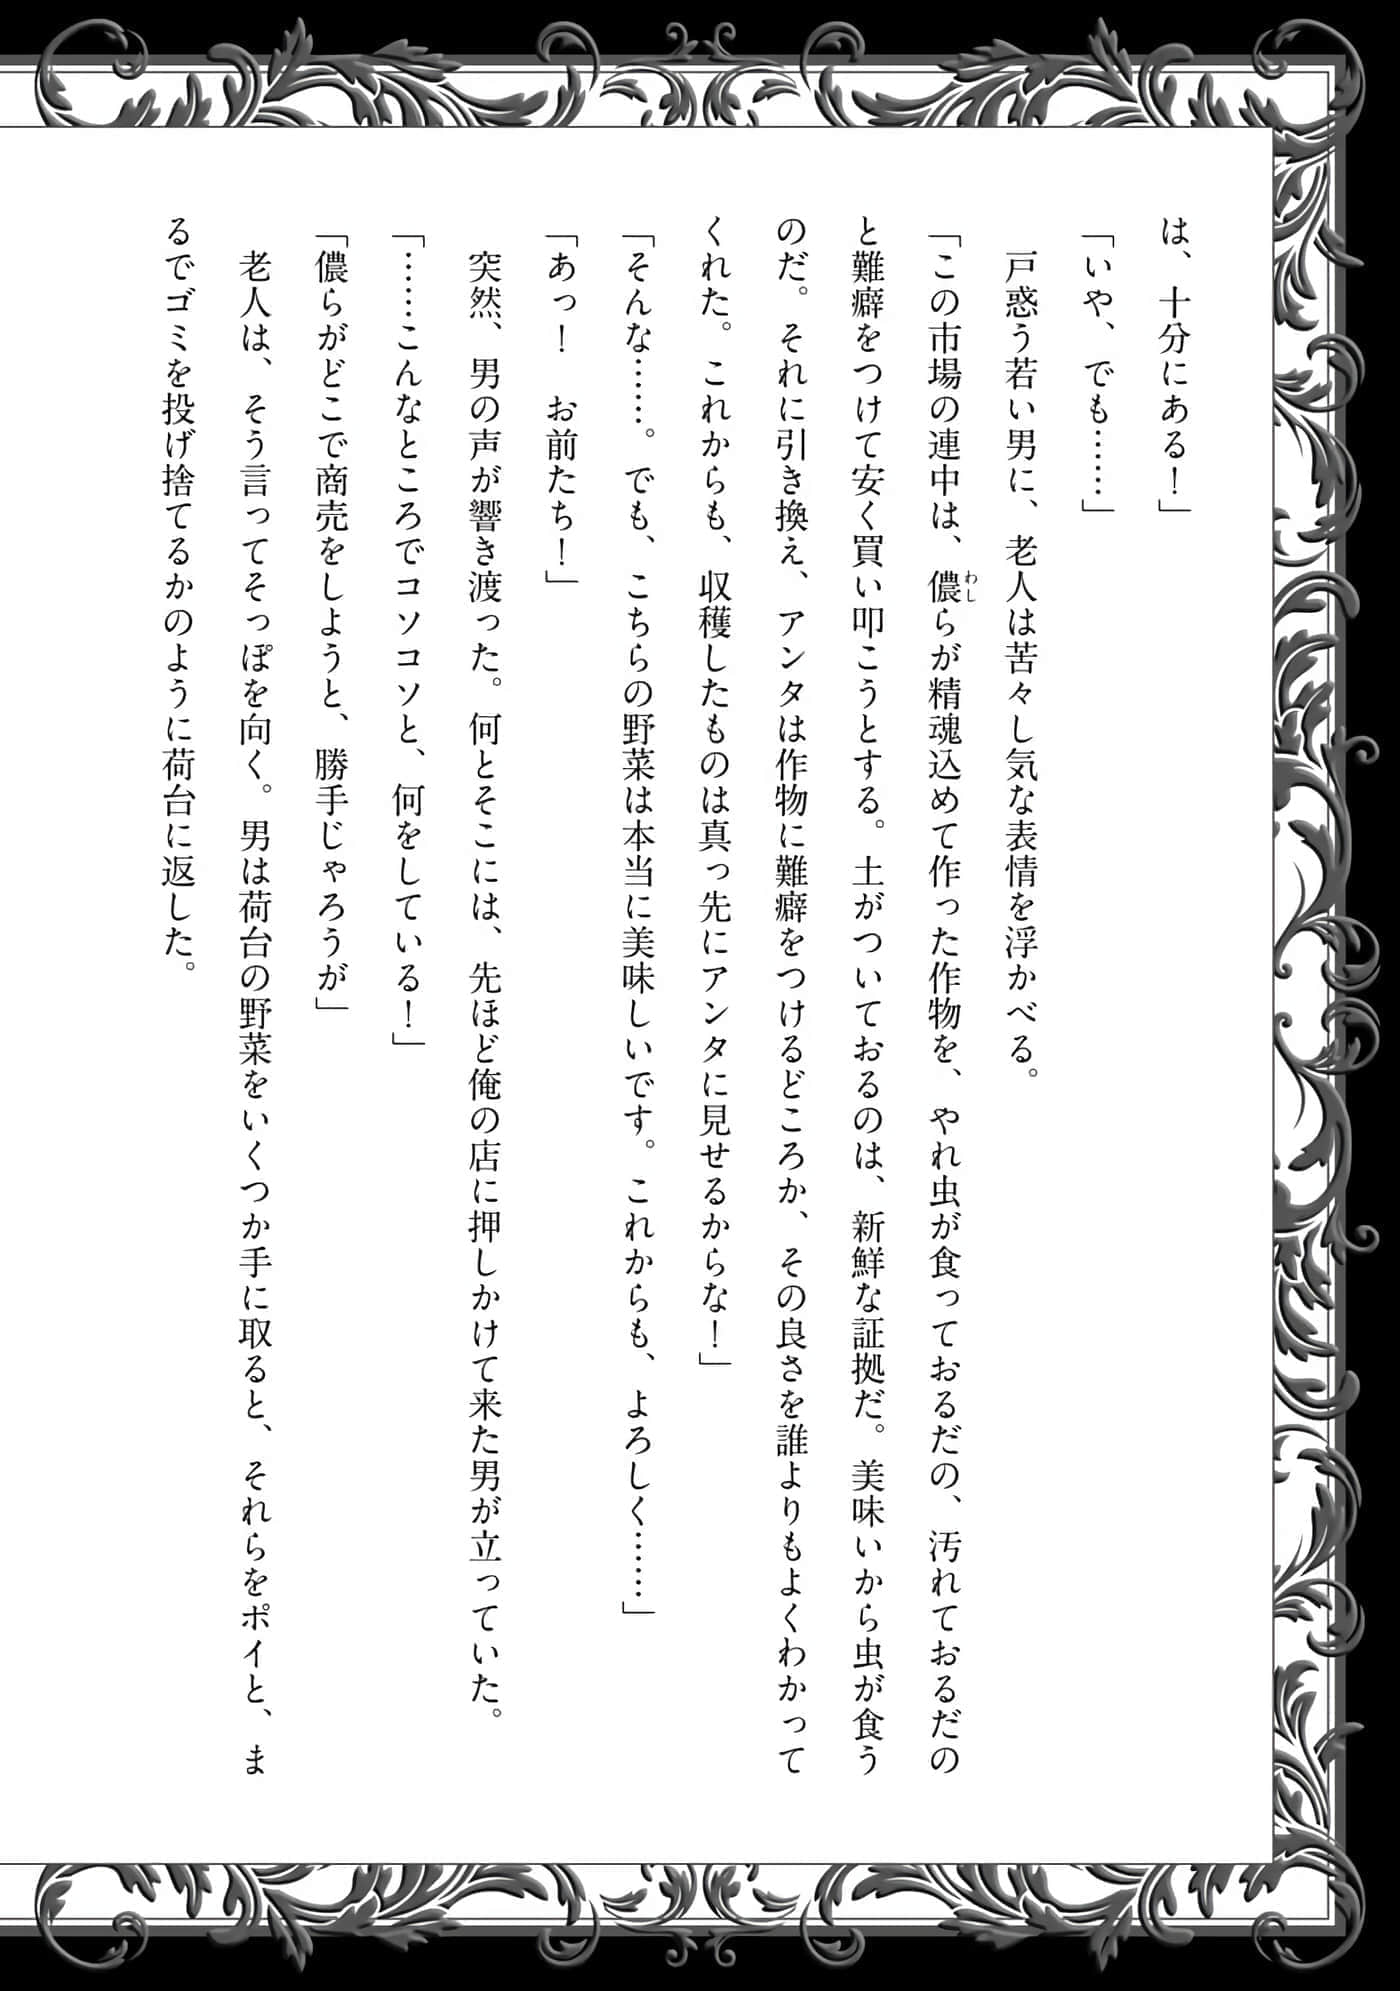 は、十分にある！」
「いや、でも……」
　戸惑う若い男に、老人は苦々し気な表情を浮かべる。
「この市場の連中は、儂らが精魂込めて作った作物を、やれ虫が食っておるだの、汚れておるだの
と難癖をつけて安く買い叩こうとする。土がついておるのは、新鮮な証拠だ。美味いから虫が食う
のだ。それに引き換え、アンタは作物に難癖をつけるどころか、その良さを誰よりもよくわかって
くれた。これからも、収穫したものは真っ先にアンタに見せるからな！」
「そんな……。でも、こちらの野菜は本当に美味しいです。これからも、よろしく……」
「あっ！　お前たち！」
　突然、男の声が響き渡った。何とそこには、先ほど俺の店に押しかけて来た男が立っていた。
「……こんなところでコソコソと、何をしている！」
「儂らがどこで商売をしようと、勝手じゃろうが」
　老人は、そう言ってそっぽを向く。男は荷台の野菜をいくつか手に取ると、それらをポイと、ま
るでゴミを投げ捨てるかのように荷台に返した。
わし